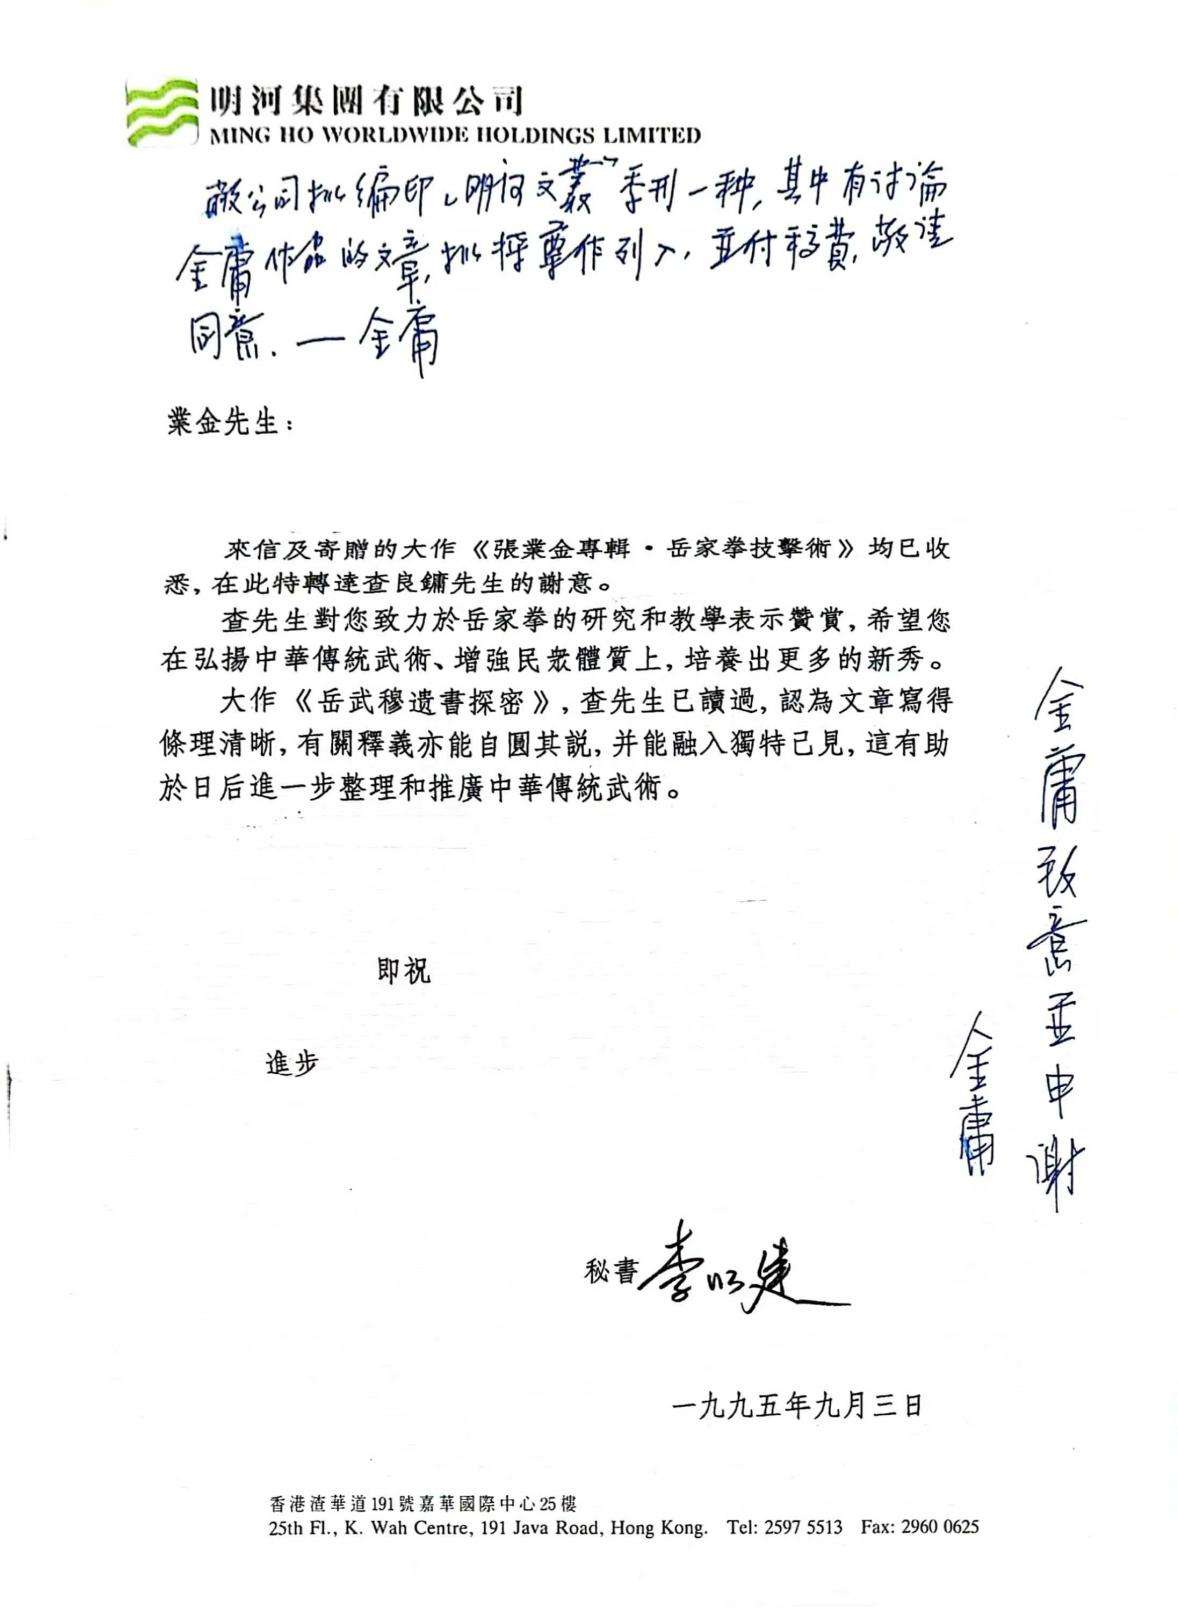 明河集團有限公司
MING HO WORLDWIDE HOLDINGS LIMITED
敝公司拟编印「明河文叢」季刊一种,其中有讨論
金庸作品的文章,拟擇尊作列入,並付稿費,敬请
同意.—金庸
業金先生:
來信及寄贈的大作《張業金專輯·岳家拳技擊術》均已收
悉,在此特轉達查良鏞先生的謝意。
查先生對您致力於岳家拳的研究和教學表示贊賞,希望您
在弘揚中華傳統武術、增強民衆體質上,培養出更多的新秀。
大作《岳武穆遺書探密》,查先生已讀過,認為文章寫得
條理清晰,有關釋義亦能自圓其説,并能融入獨特己見,這有助
於日后進一步整理和推廣中華傳統武術。
即祝
進步
金庸致意並申谢
金庸
秘書 李
一九九五年九月三日
香港渣華道191號嘉華國際中心25樓
25th Fl., K. Wah Centre, 191 Java Road, Hong Kong. Tel: 2597 5513 Fax: 2960 0625